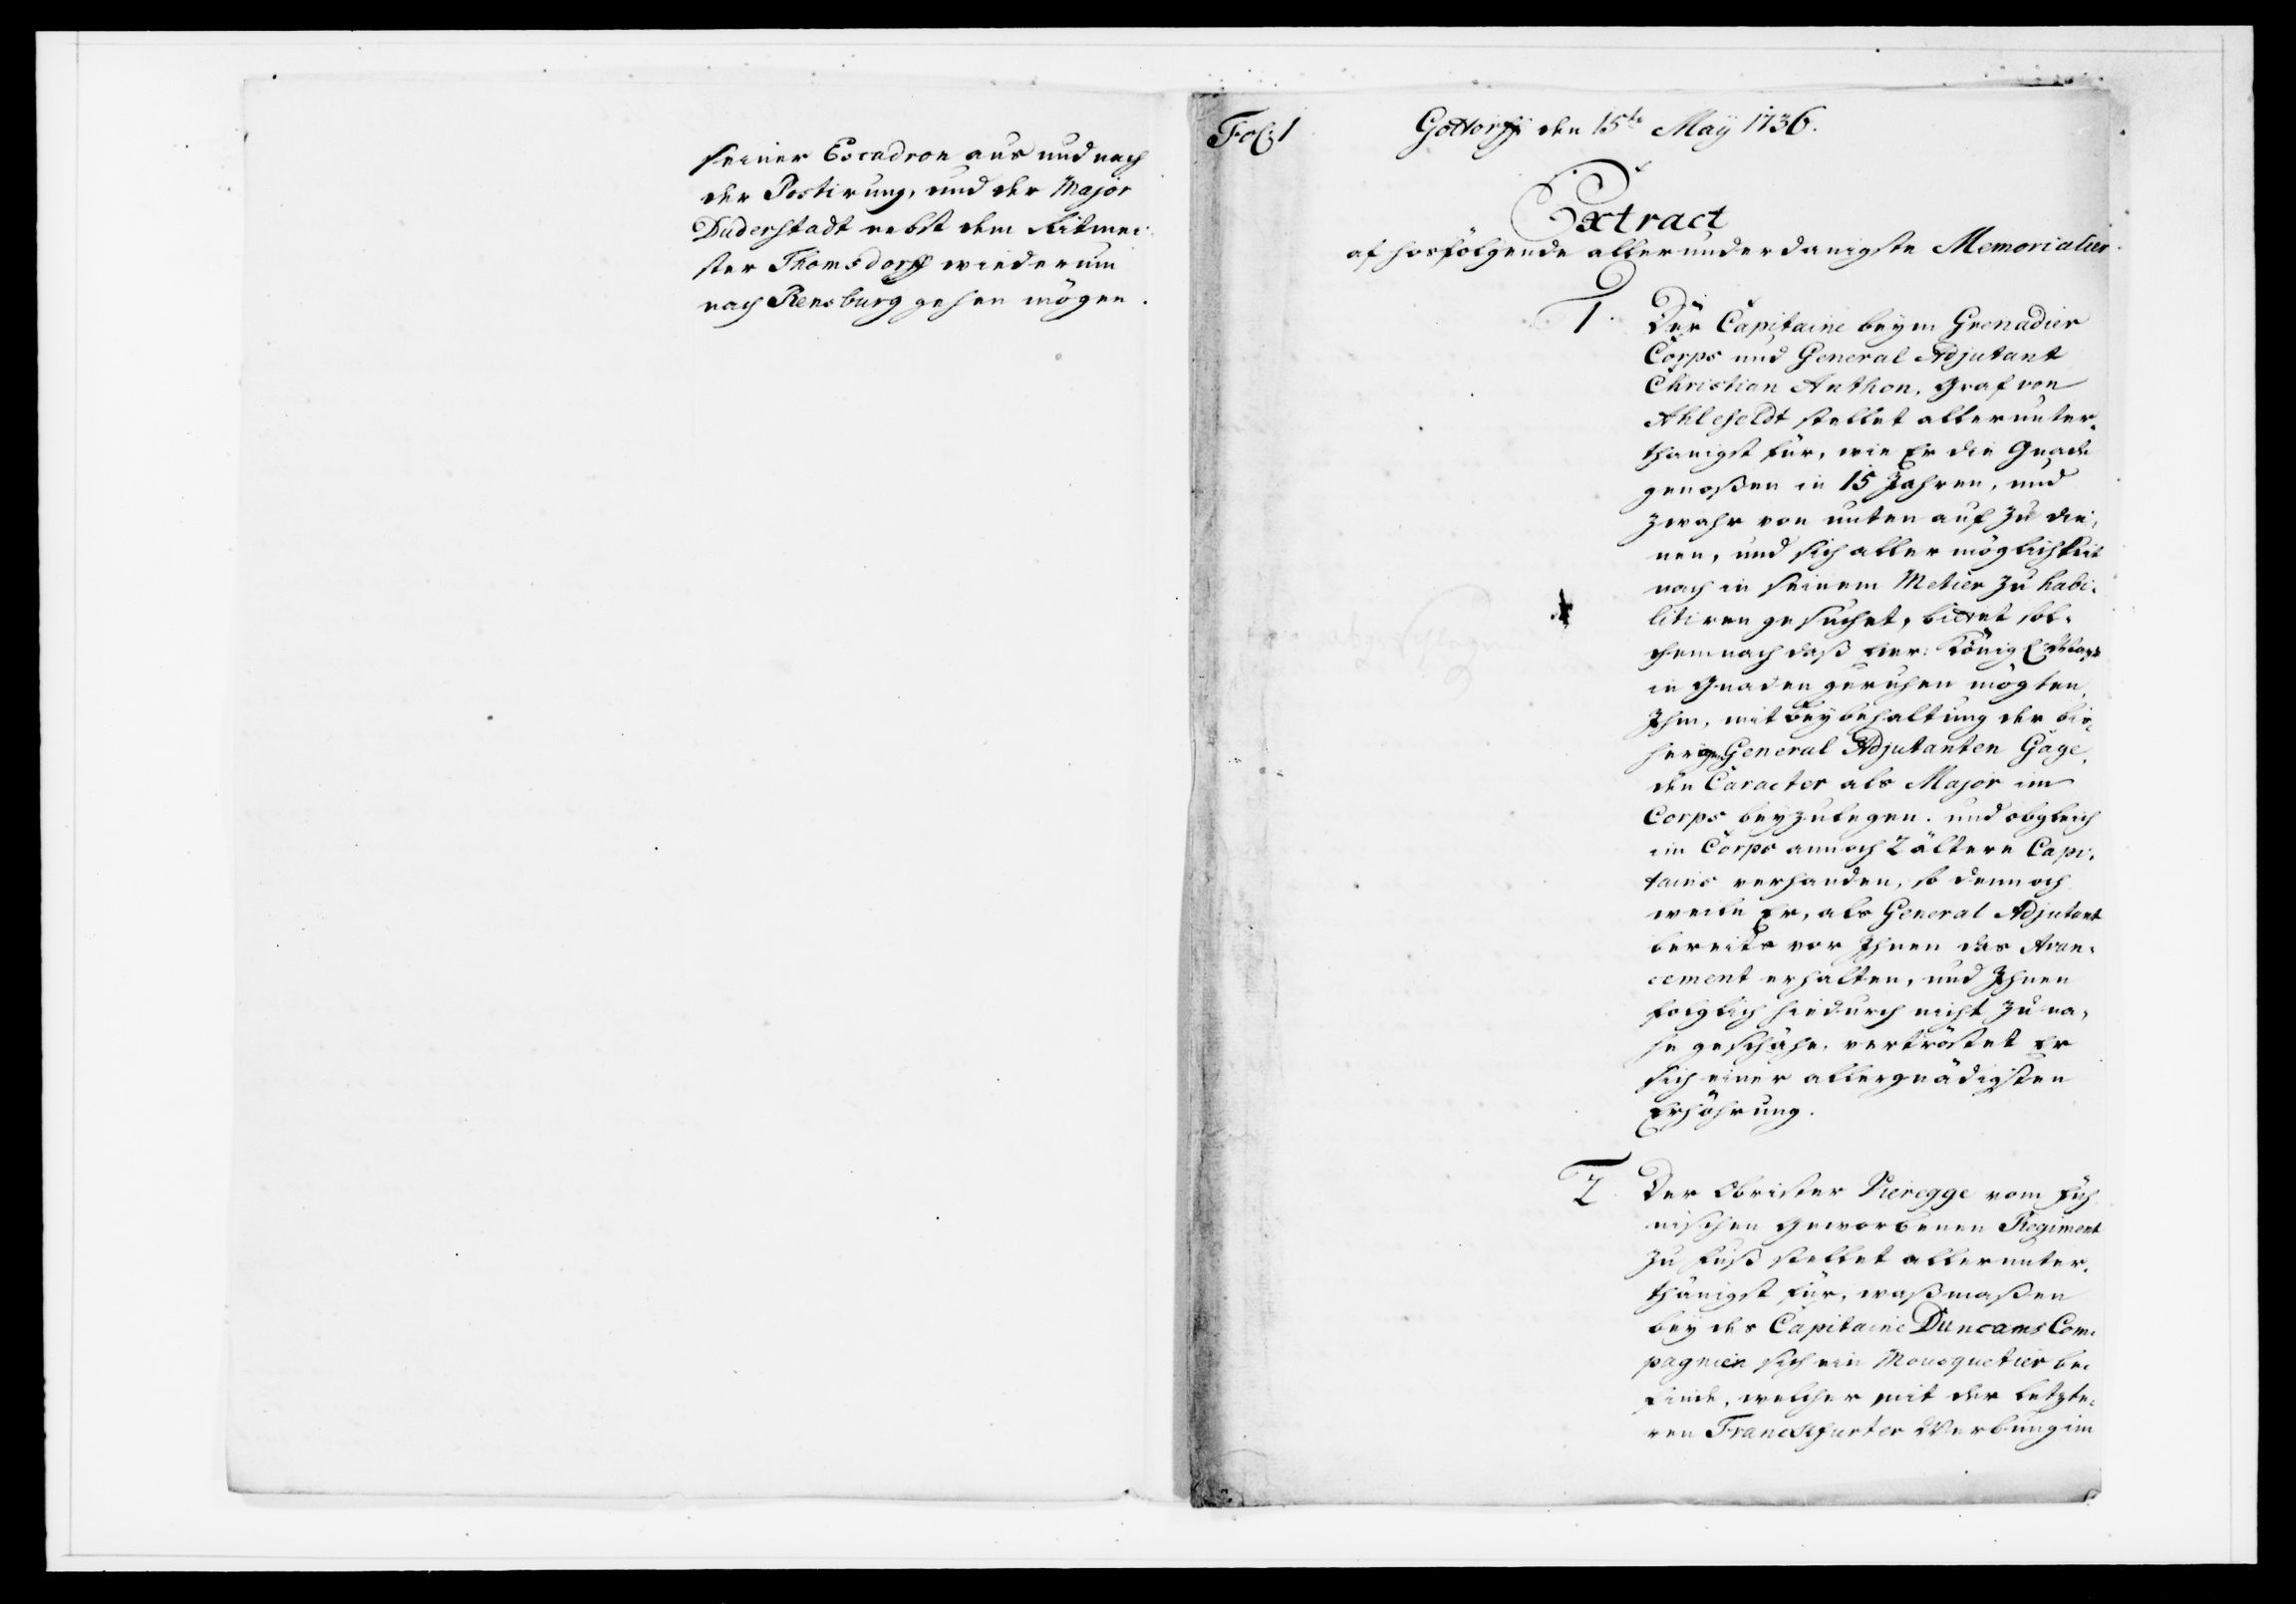 seiner Escadron aus und nach
der Postirung, und der Major
Duderstadt nebst dem Ritmei-
ster Thomsdorff wiederum
nach Rensburg gehen mögen.
Fol: 1
Gottorff den 15te Maÿ 1736.
Extract
af hosfølgende allerunderdanigste Memorialier.
1.
Der Capitaine beym Grenadier
Corps und General Adjutant
Christian Anthon, Graf von
Ahlefeldt stellet allerunter-
thänigst für, wie Er die Gnade
genoßen in 15 Jahren, und
zwahr von unten auf zu die-
nen, und sich aller möglichkeit
nach in seinem Metier zu habi-
litiren gesuchet, bittet sol-
chemnach daß Eur: König
in Gnaden geruhen mögten,
Ihm, mit beybehaltung der bis-
herigen General Adjutanten Gage,
den Caracter als Major im
Corps beyzulegen. und obgleich
im Corps annoch 2 ältere Capi-
tains verhanden, so dennoch
weile Er, als General Adjutant
bereits vor Ihnen das Avan-
cement erhalten, und Ihnen
folglich hiedurch nicht zu na-
he geschähe, vertröstet Er
sich einer allergnädigsten
Erhöhrung.
abgeschlagen
2.
Der Obrister Vieregge vom Füh-
nischen geworbenen Regiment
zu Fuß stellet allerunter-
thänigst für, waßmaßen
bey des Capitaine Duncams Com-
pagnien sich ein Mousquetier be-
finde, welcher mit der letzte-
ren Franckfurter Werbung im